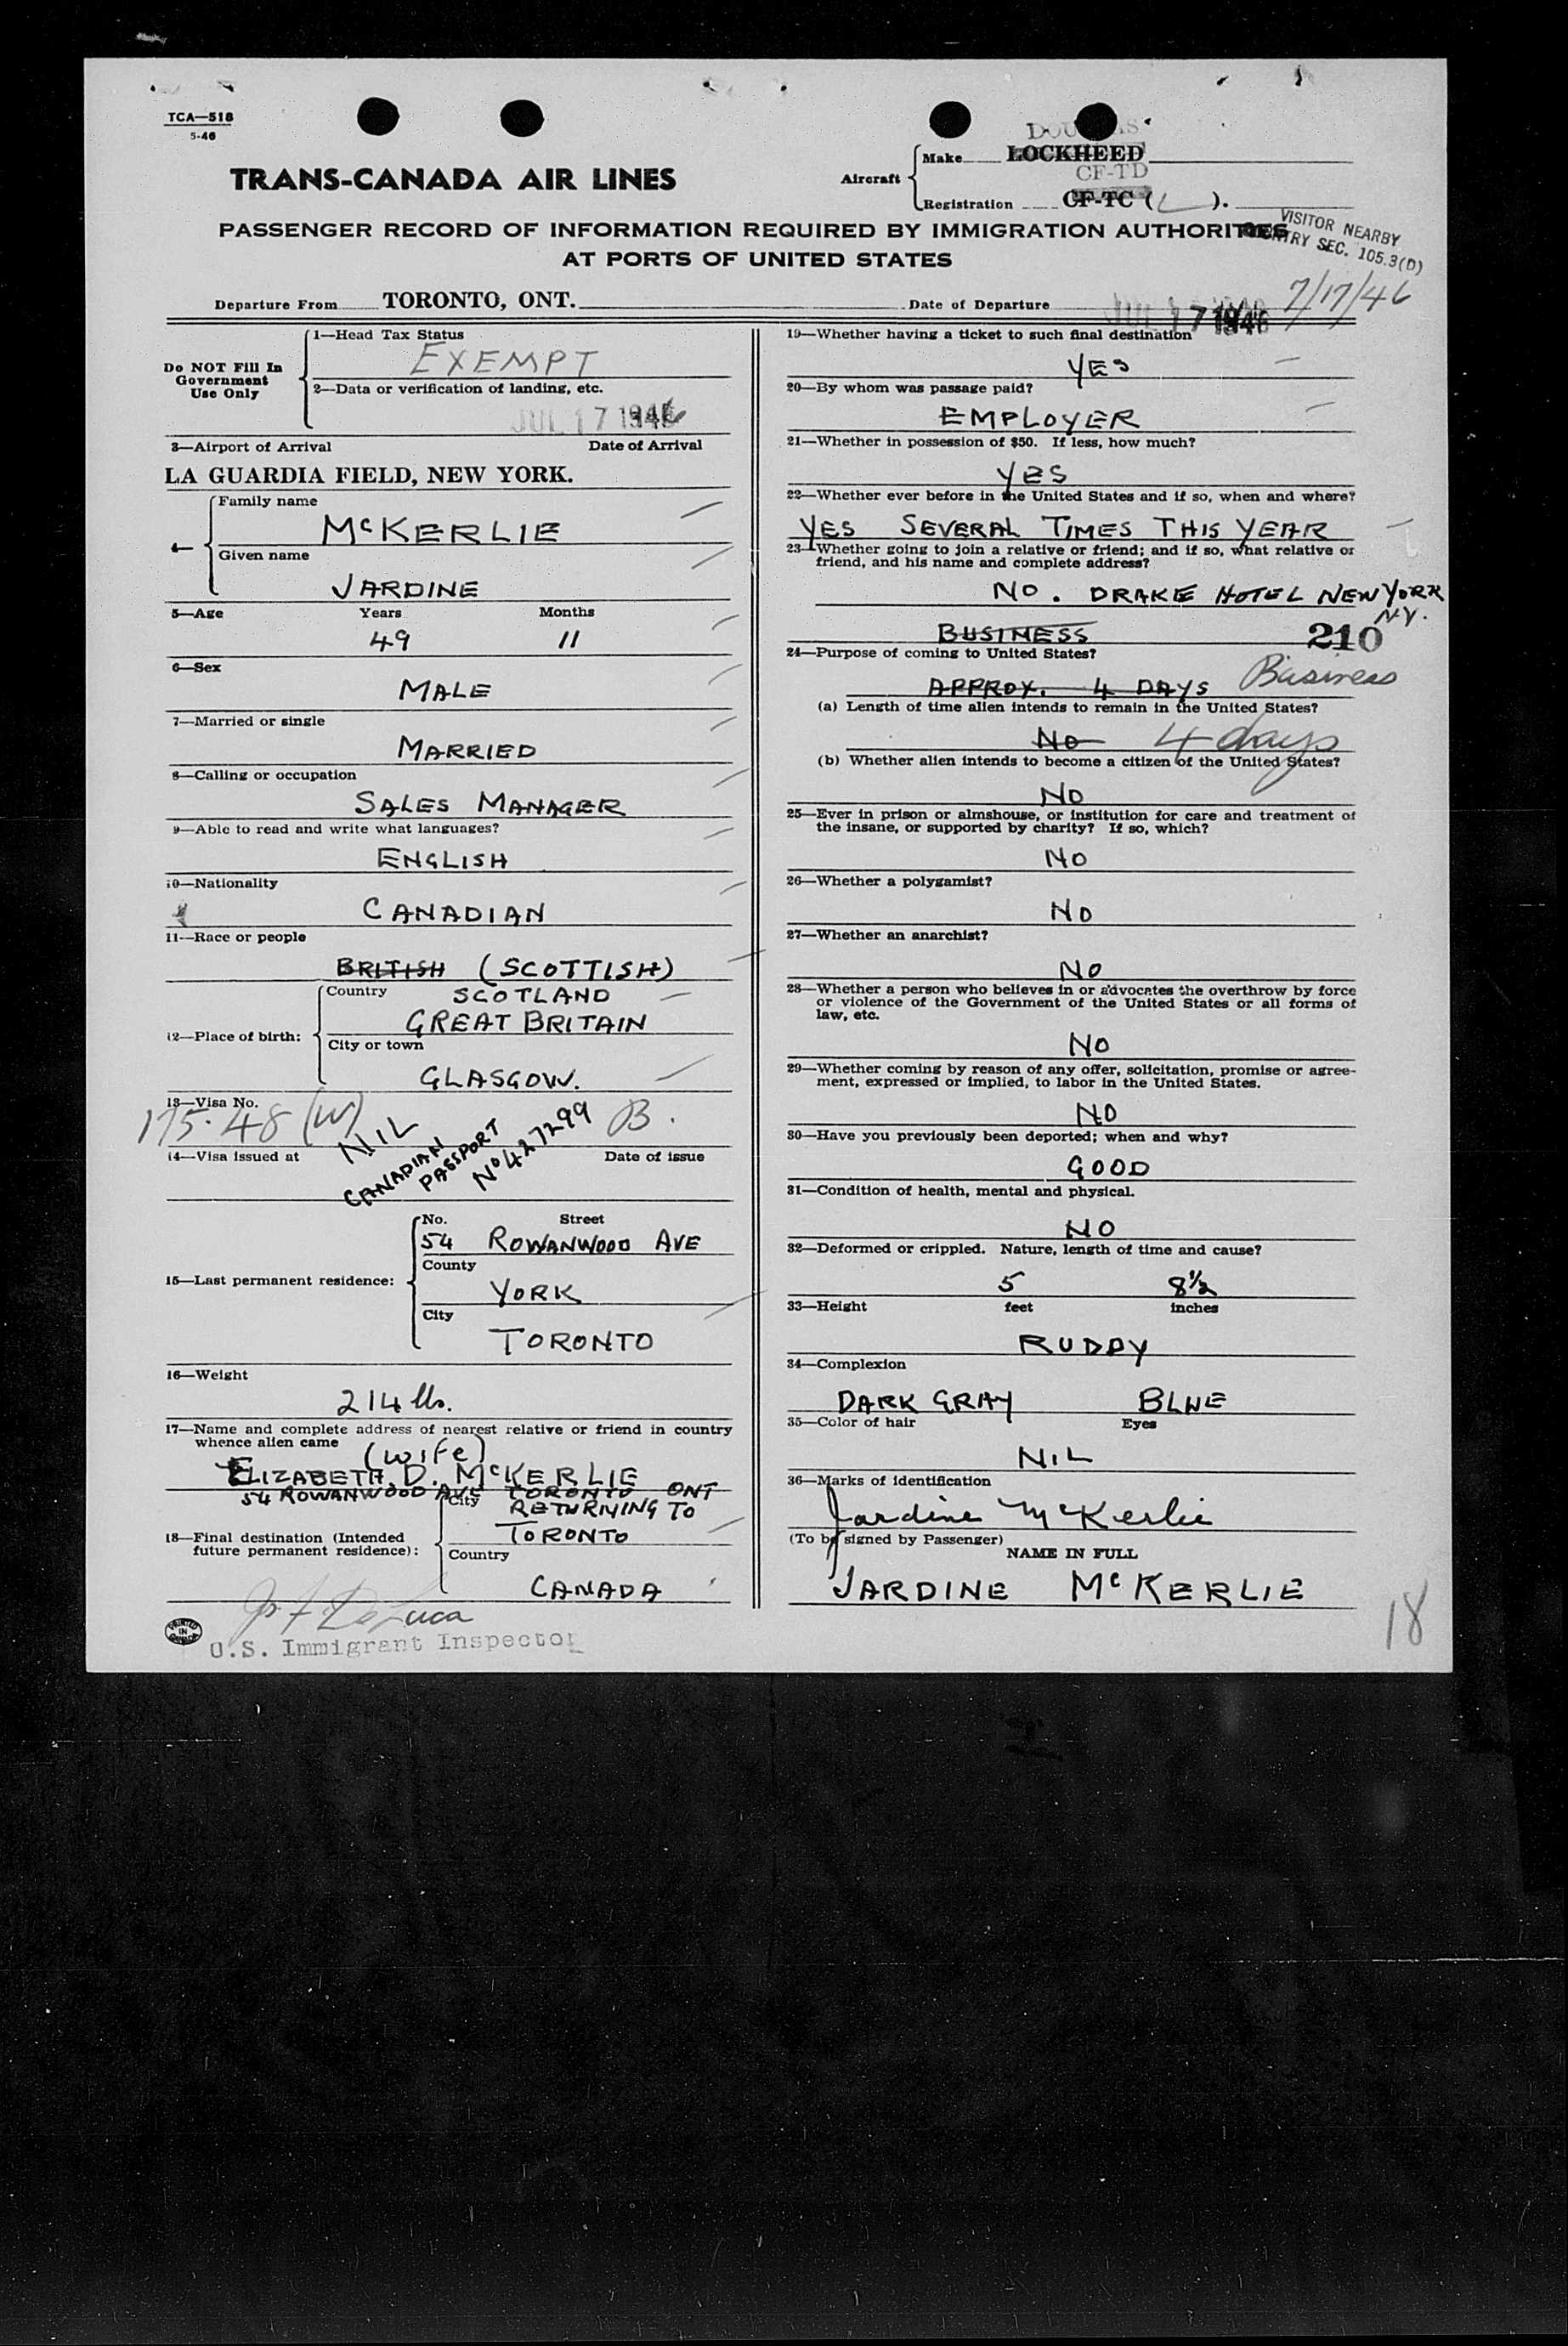 TCA—518
5-46
TRANS-CANADA AIR LINES
Aircraft
Make LOCKHEED
CF-TD
Registration CF-TC ( L ).
PASSENGER RECORD OF INFORMATION REQUIRED BY IMMIGRATION AUTHORITIES
AT PORTS OF UNITED STATES
VISITOR NEARBY
SEC. 105.3(D)
7/17/46
Departure From TORONTO, ONT. Date of Departure JUL 17 1946
Do NOT Fill In
Government
Use Only
1—Head Tax Status
EXEMPT
2—Data or verification of landing, etc.
JUL 17 1946
3—Airport of Arrival Date of Arrival
LA GUARDIA FIELD, NEW YORK.
4— Family name
McKERLIE
Given name
JARDINE
5—Age Years Months
49 11
6—Sex
MALE
7—Married or single
MARRIED
8—Calling or occupation
SALES MANAGER
9—Able to read and write what languages?
ENGLISH
10—Nationality
CANADIAN
11—Race or people
BRITISH (SCOTTISH)
12—Place of birth:
Country SCOTLAND
GREAT BRITAIN
City or town
GLASGOW.
13—Visa No.
175.48 (W) NIL B.
CANADIAN
PASSPORT
No 427299
14—Visa issued at Date of issue
15—Last permanent residence:
No. Street
54 ROWANWOOD AVE
County
YORK
City
TORONTO
16—Weight
214 lbs.
17—Name and complete address of nearest relative or friend in country
whence alien came
(wife)
ELIZABETH D. McKERLIE
54 ROWANWOOD AVE TORONTO ONT
City RETURNING TO
TORONTO
18—Final destination (Intended
future permanent residence):
Country
CANADA
U.S. Immigrant Inspector
PRINTED
IN
CANADA
19—Whether having a ticket to such final destination
YES
20—By whom was passage paid?
EMPLOYER
21—Whether in possession of $50. If less, how much?
YES
22—Whether ever before in the United States and if so, when and where?
YES SEVERAL TIMES THIS YEAR
23—Whether going to join a relative or friend; and if so, what relative or
friend, and his name and complete address?
NO. DRAKE HOTEL NEW YORK
N.Y.
BUSINESS 210
24—Purpose of coming to United States?
APPROX. 4 DAYS Business
(a) Length of time alien intends to remain in the United States?
No 4 days
(b) Whether alien intends to become a citizen of the United States?
NO
25—Ever in prison or almshouse, or institution for care and treatment of
the insane, or supported by charity? If so, which?
NO
26—Whether a polygamist?
NO
27—Whether an anarchist?
NO
28—Whether a person who believes in or advocates the overthrow by force
or violence of the Government of the United States or all forms of
law, etc.
NO
29—Whether coming by reason of any offer, solicitation, promise or agree-
ment, expressed or implied, to labor in the United States.
NO
30—Have you previously been deported; when and why?
GOOD
31—Condition of health, mental and physical.
NO
32—Deformed or crippled. Nature, length of time and cause?
5 8½
33—Height feet inches
RUDDY
34—Complexion
DARK GRAY BLUE
35—Color of hair Eyes
NIL
36—Marks of identification
Jardine McKerlie
(To be signed by Passenger)
NAME IN FULL
JARDINE McKERLIE
18